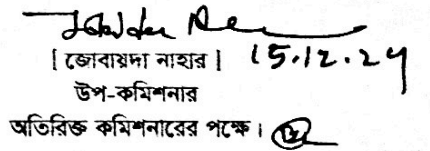 [ জোবায়দা নাহার ] 15.12.24
উপ-কমিশনার
অতিরিক্ত কমিশনারের পক্ষে।